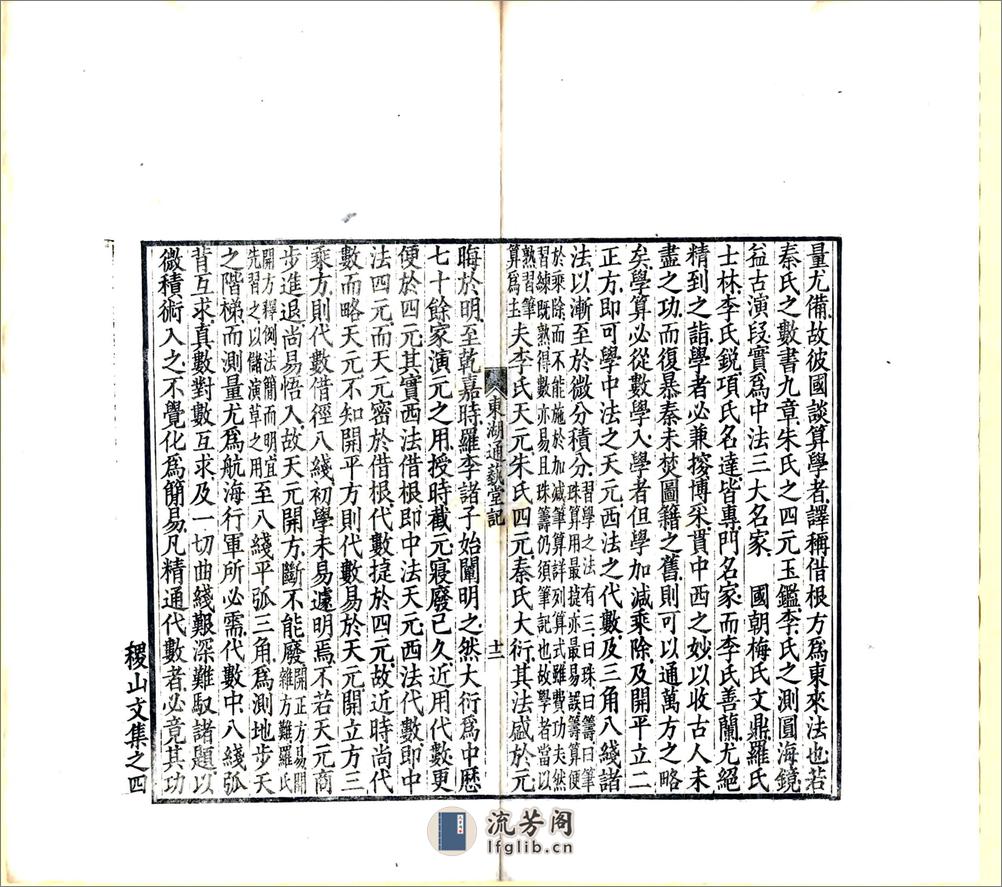 量尤備故彼國談算學者譯稱借根方爲東來法也若
秦氏之數書九章朱氏之四元玉鑑李氏之測圓海鏡
益古演段實爲中法三大名家　國朝梅氏文鼎羅氏
士林李氏銳項氏名達皆專門名家而李氏善蘭尤絕
精到之詣學者必兼擦博采貫中西之妙以收古人未
盡之功而復暴秦未焚圖籍之舊則可以通萬方之略
矣學算必從數學入學者但學加減乘除及開平立二
正方即可學中法之天元西法之代數及三角八綫諸
法以漸至於微分積分習學之法有三曰珠曰籌曰筆珠算用最捷亦最易誤籌算便
於乘除而不能施於加減筆算詳列算式雖費功夫然習練既熟得數亦易且珠籌仍須筆記也故學者當以
熟習筆算爲主夫李氏天元朱氏四元秦氏大衍其法盛於元
東湖通藝堂記
十二
晦於明至乾嘉時羅李諸子始闡明之然大衍爲中歷
七十餘家演元之用授時截元寢廢已久近用代數更
便於四元其實西法借根即中法天元西法代數即中
法四元而天元密於借根代數捷於四元故近時尚代
數而略天元不知開平方則代數易於天元開立方三
乘方則代數借徑八綫初學未易遽明焉不若天元商
步進退尚易悟入故天元開方斷不能廢開正方易開雜方難羅氏
開方釋例法簡而明宜先習之以儲演草之用至八綫平弧三角爲測地步天
之階梯而測量尤爲航海行軍所必需代數中八綫弧
背互求真數對數互求及一切曲綫艱深難馭諸題以
微積術入之不覺化爲簡易凡精通代數者必竟其功
稷山文集之四
流芳阁
lfglib.cn